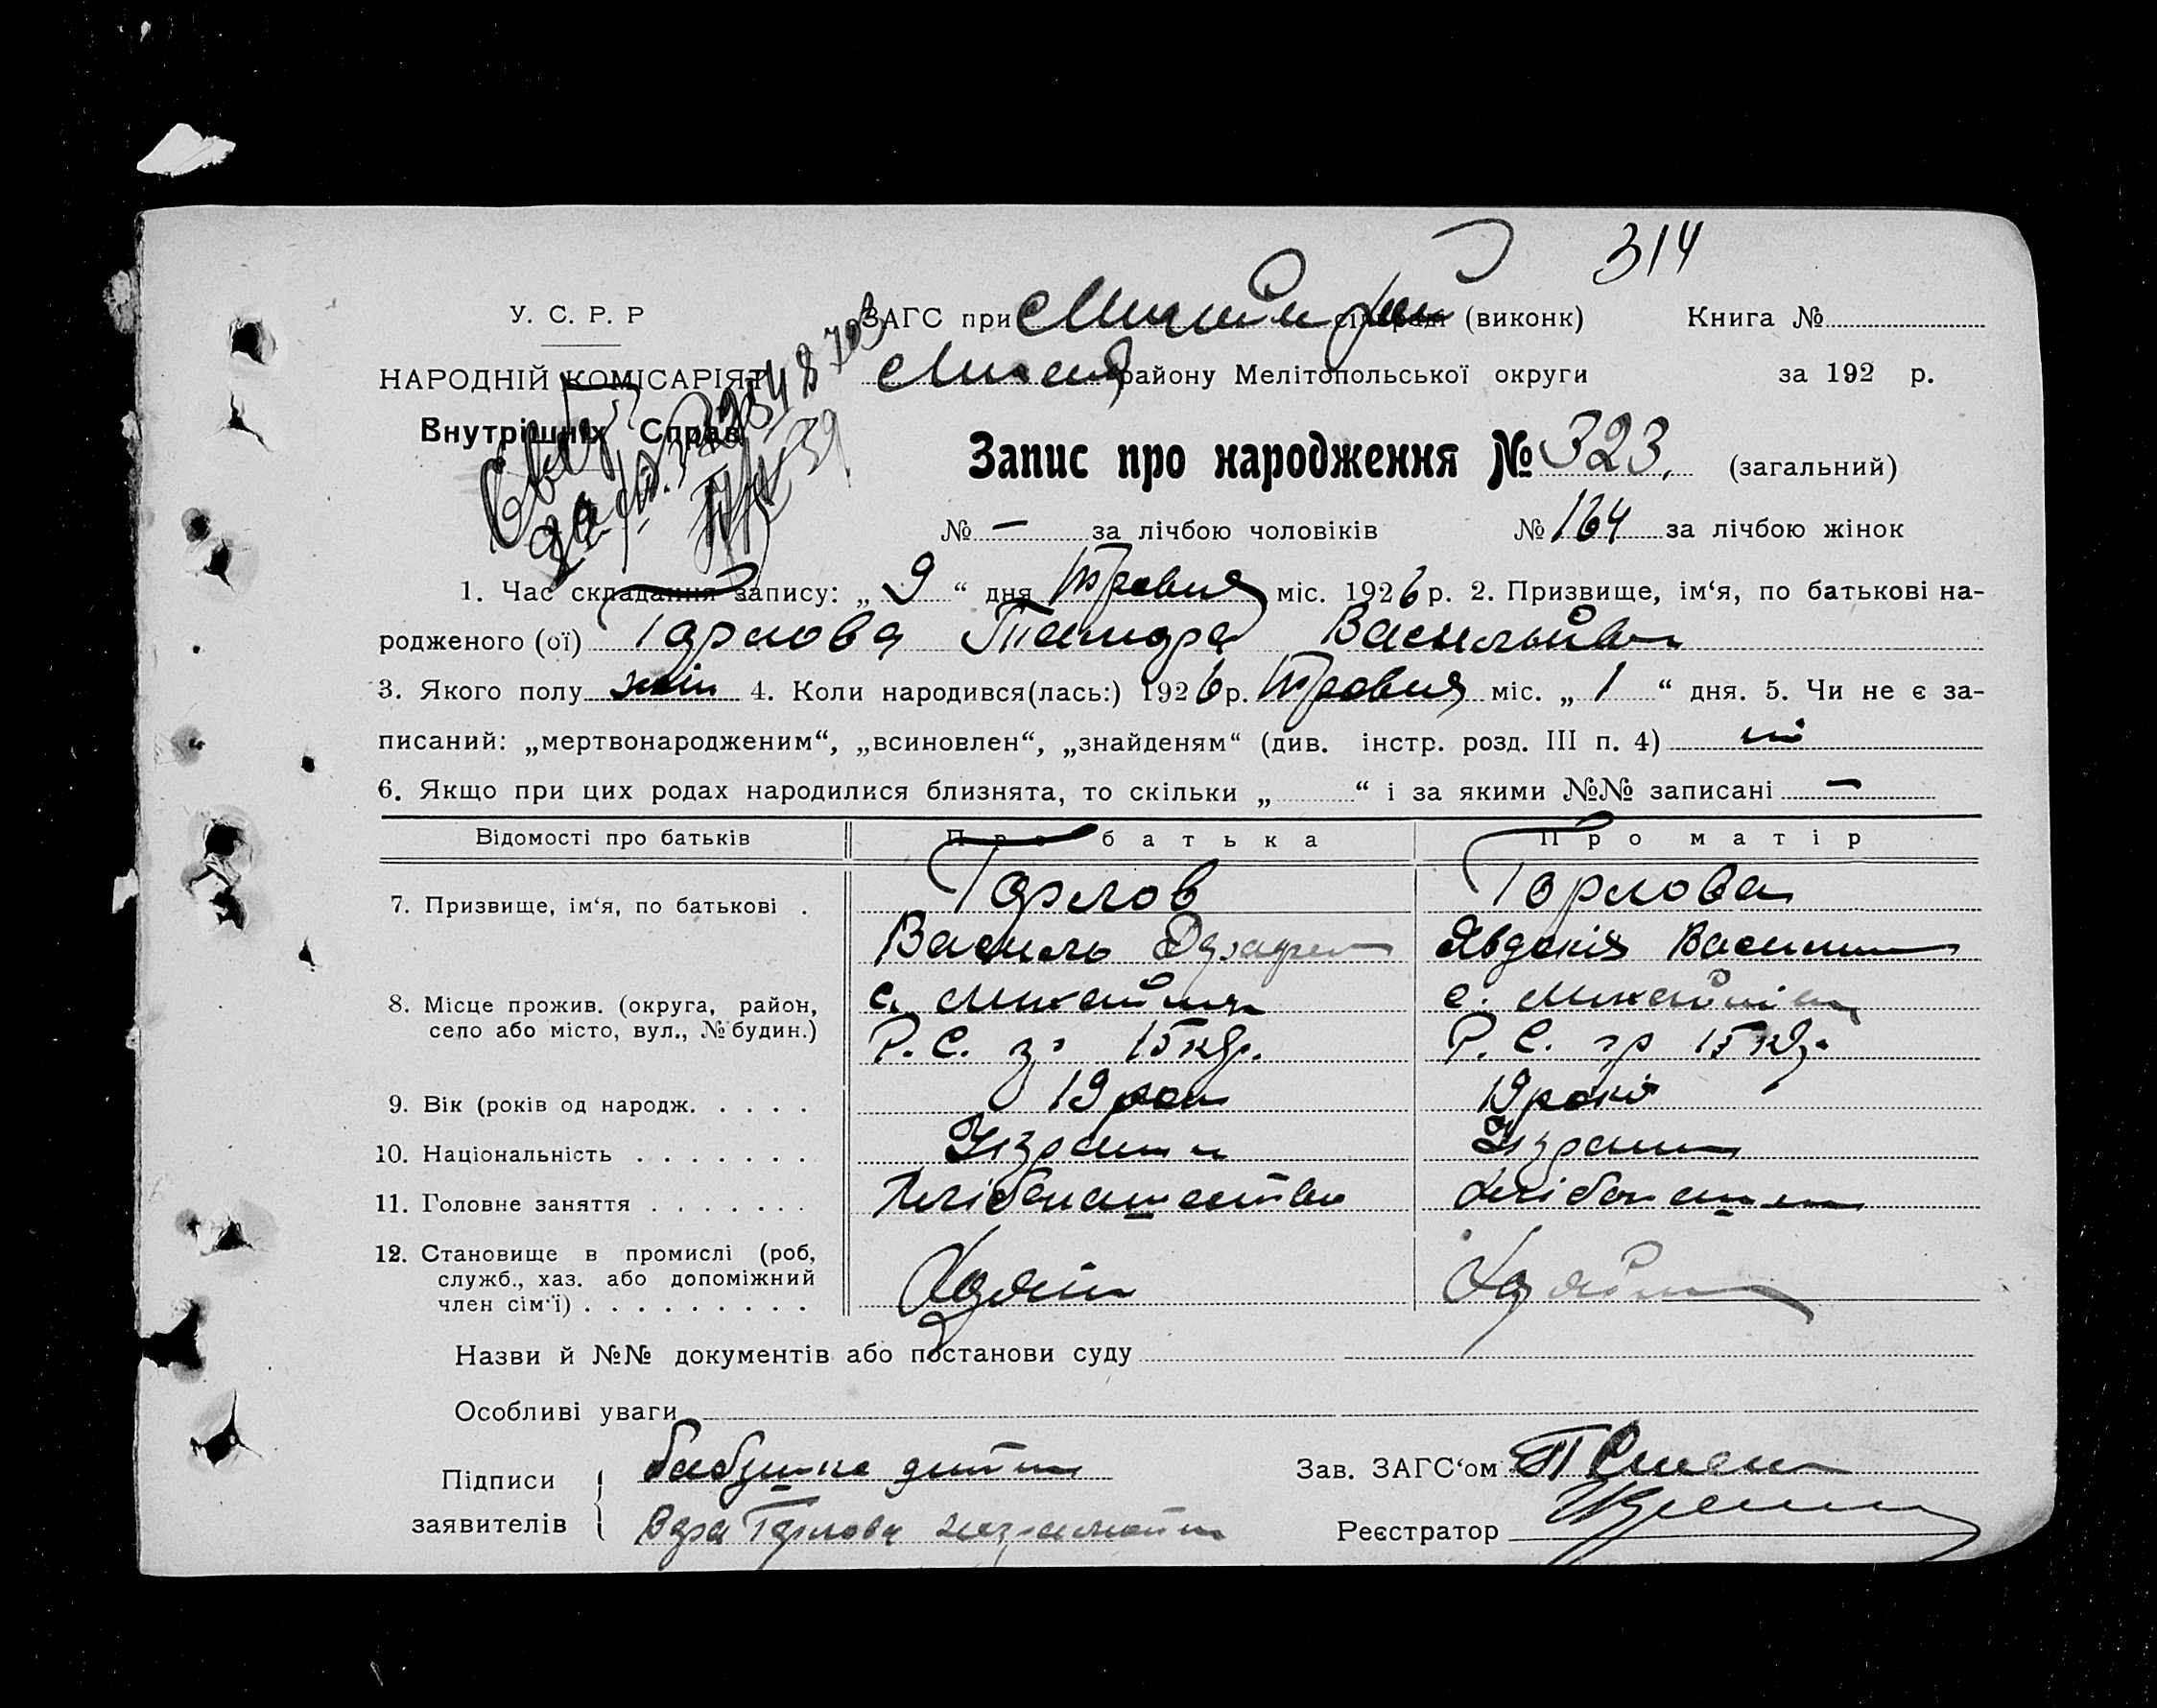 314
У. С. Р. Р
ЗАГС при сільраді (виконк) Книга №
НАРОДНІЙ КОМІСАРІЯТ
району Мелітопольської округи за 192 р.
Внутрішніх Справ
Запис про народження № 323. (загальний)
№ — за лічбою чоловіків № 164 за лічбою жінок
1. Час складання запису: „ 9 “ дня Травня міс. 1926 р. 2. Призвище, ім‘я, по батькові на-
родженого (ої) Горлова Тамара Васильївн
3. Якого полу жін 4. Коли народився(лась:) 1926 р. Травня міс. „ 1 “ дня. 5. Чи не є за-
писаний: „мертвонародженим“, „всиновлен“, „знайденям“ (див. інстр. розд. III п. 4) ні
6. Якщо при цих родах народилися близнята, то скільки „ “ і за якими №№ записані —
Відомості про батьків Про батька Про матір
7. Призвище, ім‘я, по батькові . Горлов Горлова
Василь Явдокія Васил
8. Місце прожив. (округа, район, с. с.
село або місто, вул., № будин.) Р. С. 15 Р. С. 15
9. Вік (років од народж. . . . . 19 рок 19 рокі
10. Національність . . . . . . . Украин Украин
11. Головне заняття . . . . . . . Хлібопашество Хлібопаш
12. Становище в промислі (роб,
служб., хаз. або допоміжний
член сім‘ї) . . . . . . . . . Хазяін Хазяйн
Назви й №№ документів або постанови суду
Особливі уваги
Підписи бабушка дитини Зав. ЗАГС‘ом
заявителів Горлова Реєстратор